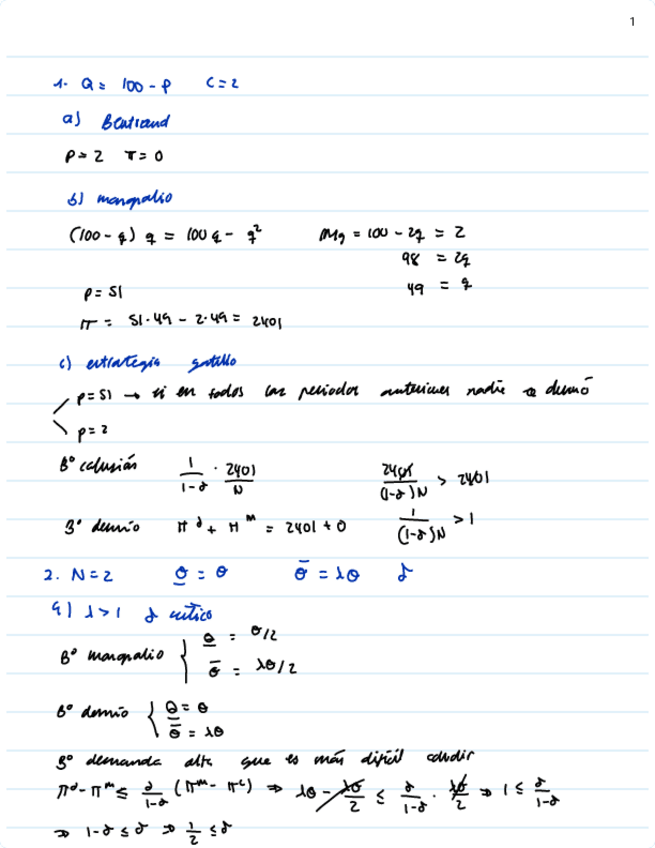 1
1. Q = 100 - P C = 2
a) Bertrand
P = 2 π = 0
b) monopolio
(100 - q) q = 100q - q² Mg = 100 - 2q = 2
98 = 2q
49 = q
P = 51
π = 51·49 - 2·49 = 2401
c) estrategia gatillo
p = 51 → si en todos los periodos anteriores nadie se desvió
p = 2
Bº colusión 1/(1-δ) · 2401/N 2401/((1-δ)N) > 2401
Bº desvío π^d + π^m = 2401 + 0 1/((1-δ)N) > 1
2. N = 2 θ̲ = θ θ̄ = λθ δ
a) λ > 1 δ crítico
Bº monopolio { θ̲ = θ/2
θ̄ = λθ/2
Bº desvío { θ̲ = θ
θ̄ = λθ
Bº demanda alta que es más difícil coludir
π^d - π^m ≤ δ/(1-δ) (π^m - π^c) ⇒ λθ - λθ/2 ≤ δ/(1-δ) · λθ/2 ⇒ 1 ≤ δ/(1-δ)
⇒ 1-δ ≤ δ ⇒ 1/2 ≤ δ